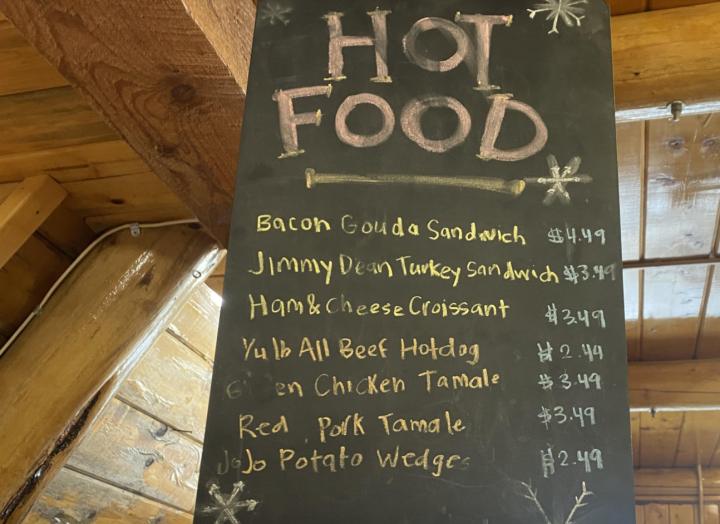 HOT
FOOD
Bacon Gouda Sandwich $4.49
Jimmy Dean Turkey Sandwich $3.49
Ham & Cheese Croissant $3.49
1/4 lb All Beef Hotdog $2.49
Chicken Tamale $3.49
Red Pork Tamale $3.49
JoJo Potato Wedges $2.49